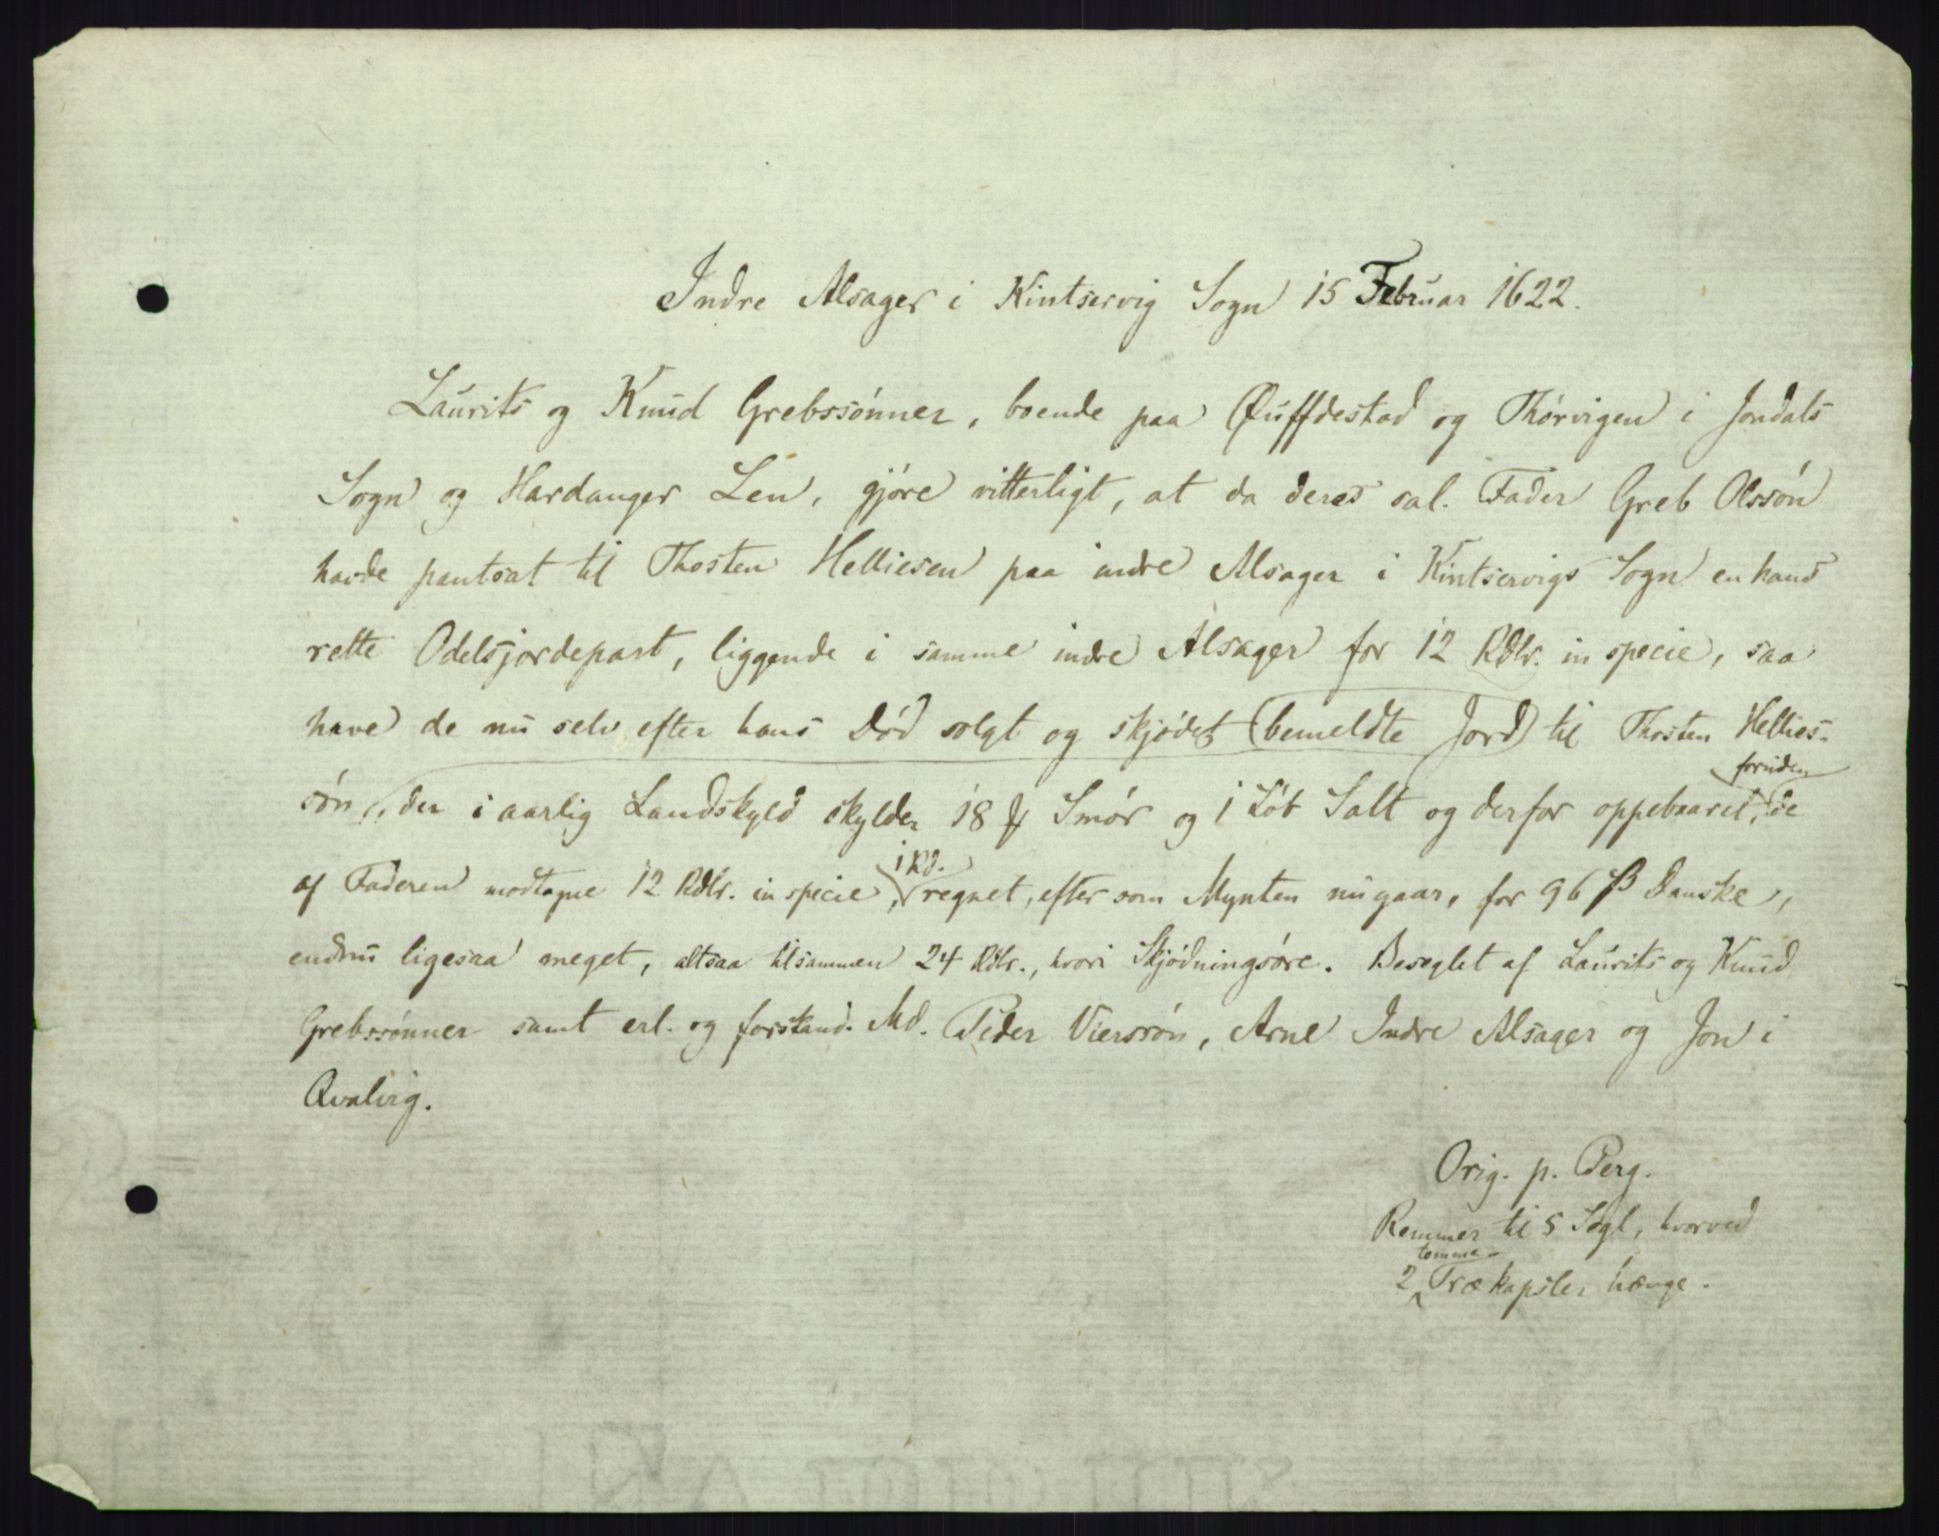 Indre Alsager i Kintservig Sogn 15 Februar 1622.
Laurits og Knud Grebssønner, boende paa Øuffdestad og Thørvigen i Jondals
Sogn og Hardanger Len, gjøre vitterligt, at da deres sal. Fader Greb Olssøn
havde pantsat til Thosten Helliesen paa indre Alsager i Kintservigs Sogn en hans
rette Odelsjordepart, liggende i samme indre Alsager for 12 Rdlr. in specie, saa
have de nu selv efter hans Død solgt og skjødet (bemeldte Jord) til Thosten Hellies-
foruden
søn, der i aarlig Landskyld skylder 18 Smør og 1 Løb Salt og derfor oppebaaret, de
1 Rd.
af Faderen modtagne 12 Rdlr. in specie, regnet, efter som Mynten nu gaar, for 96 ß Danske,
endnu ligesaa meget, altsaa tilsammen 24 Rdlr., hvori Skjødningsøre. Beseglet af Laurits og Knud
Grebssønner samt erl. og forstand. Md. Peder Vierssøn, Arne Indre Alsager og Jon i
Qvalvig.
Orig. p. Perg.
Remmer til 5 Segl, hvorved
tomme
2 Trækapsler hænge.